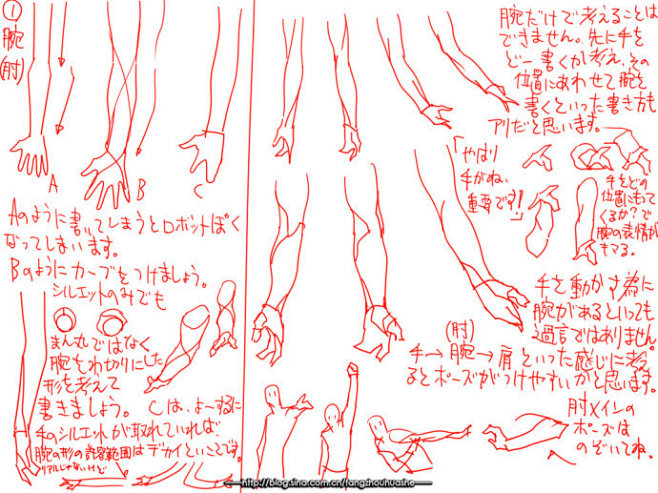 ①
腕
(肘)
A
B
C
Aのように書いてしまうとロボットぽく
なってしまいます。
Bのようにカーブをつけましょう。
シルエットのみでも
まん丸ではなく
腕をわ切りにした
形を考えて
書きましょう。Cは、よーするに
手のシルエットが取れていれば
腕の形の許容範囲はデカイということです。
リアルじゃないけど
腕だけで考えることは
できません。先に手を
どー書くか考え、その
位置にあわせて腕を
書くといった書き方も
アリだと思います。
「やはり
手がね、
重要です!」
手をどの
位置にもって
くるか?で
腕の表情が
キマる。
手を動かす為に
腕があるといっても
過言ではありません。
(肘)
手→腕→肩といった感じに考え
るとポーズがつけやすいかと思います。
肘メインの
ポーズは
のぞいてね。
http://blog.sina.com.cn/fangzhouhuashe